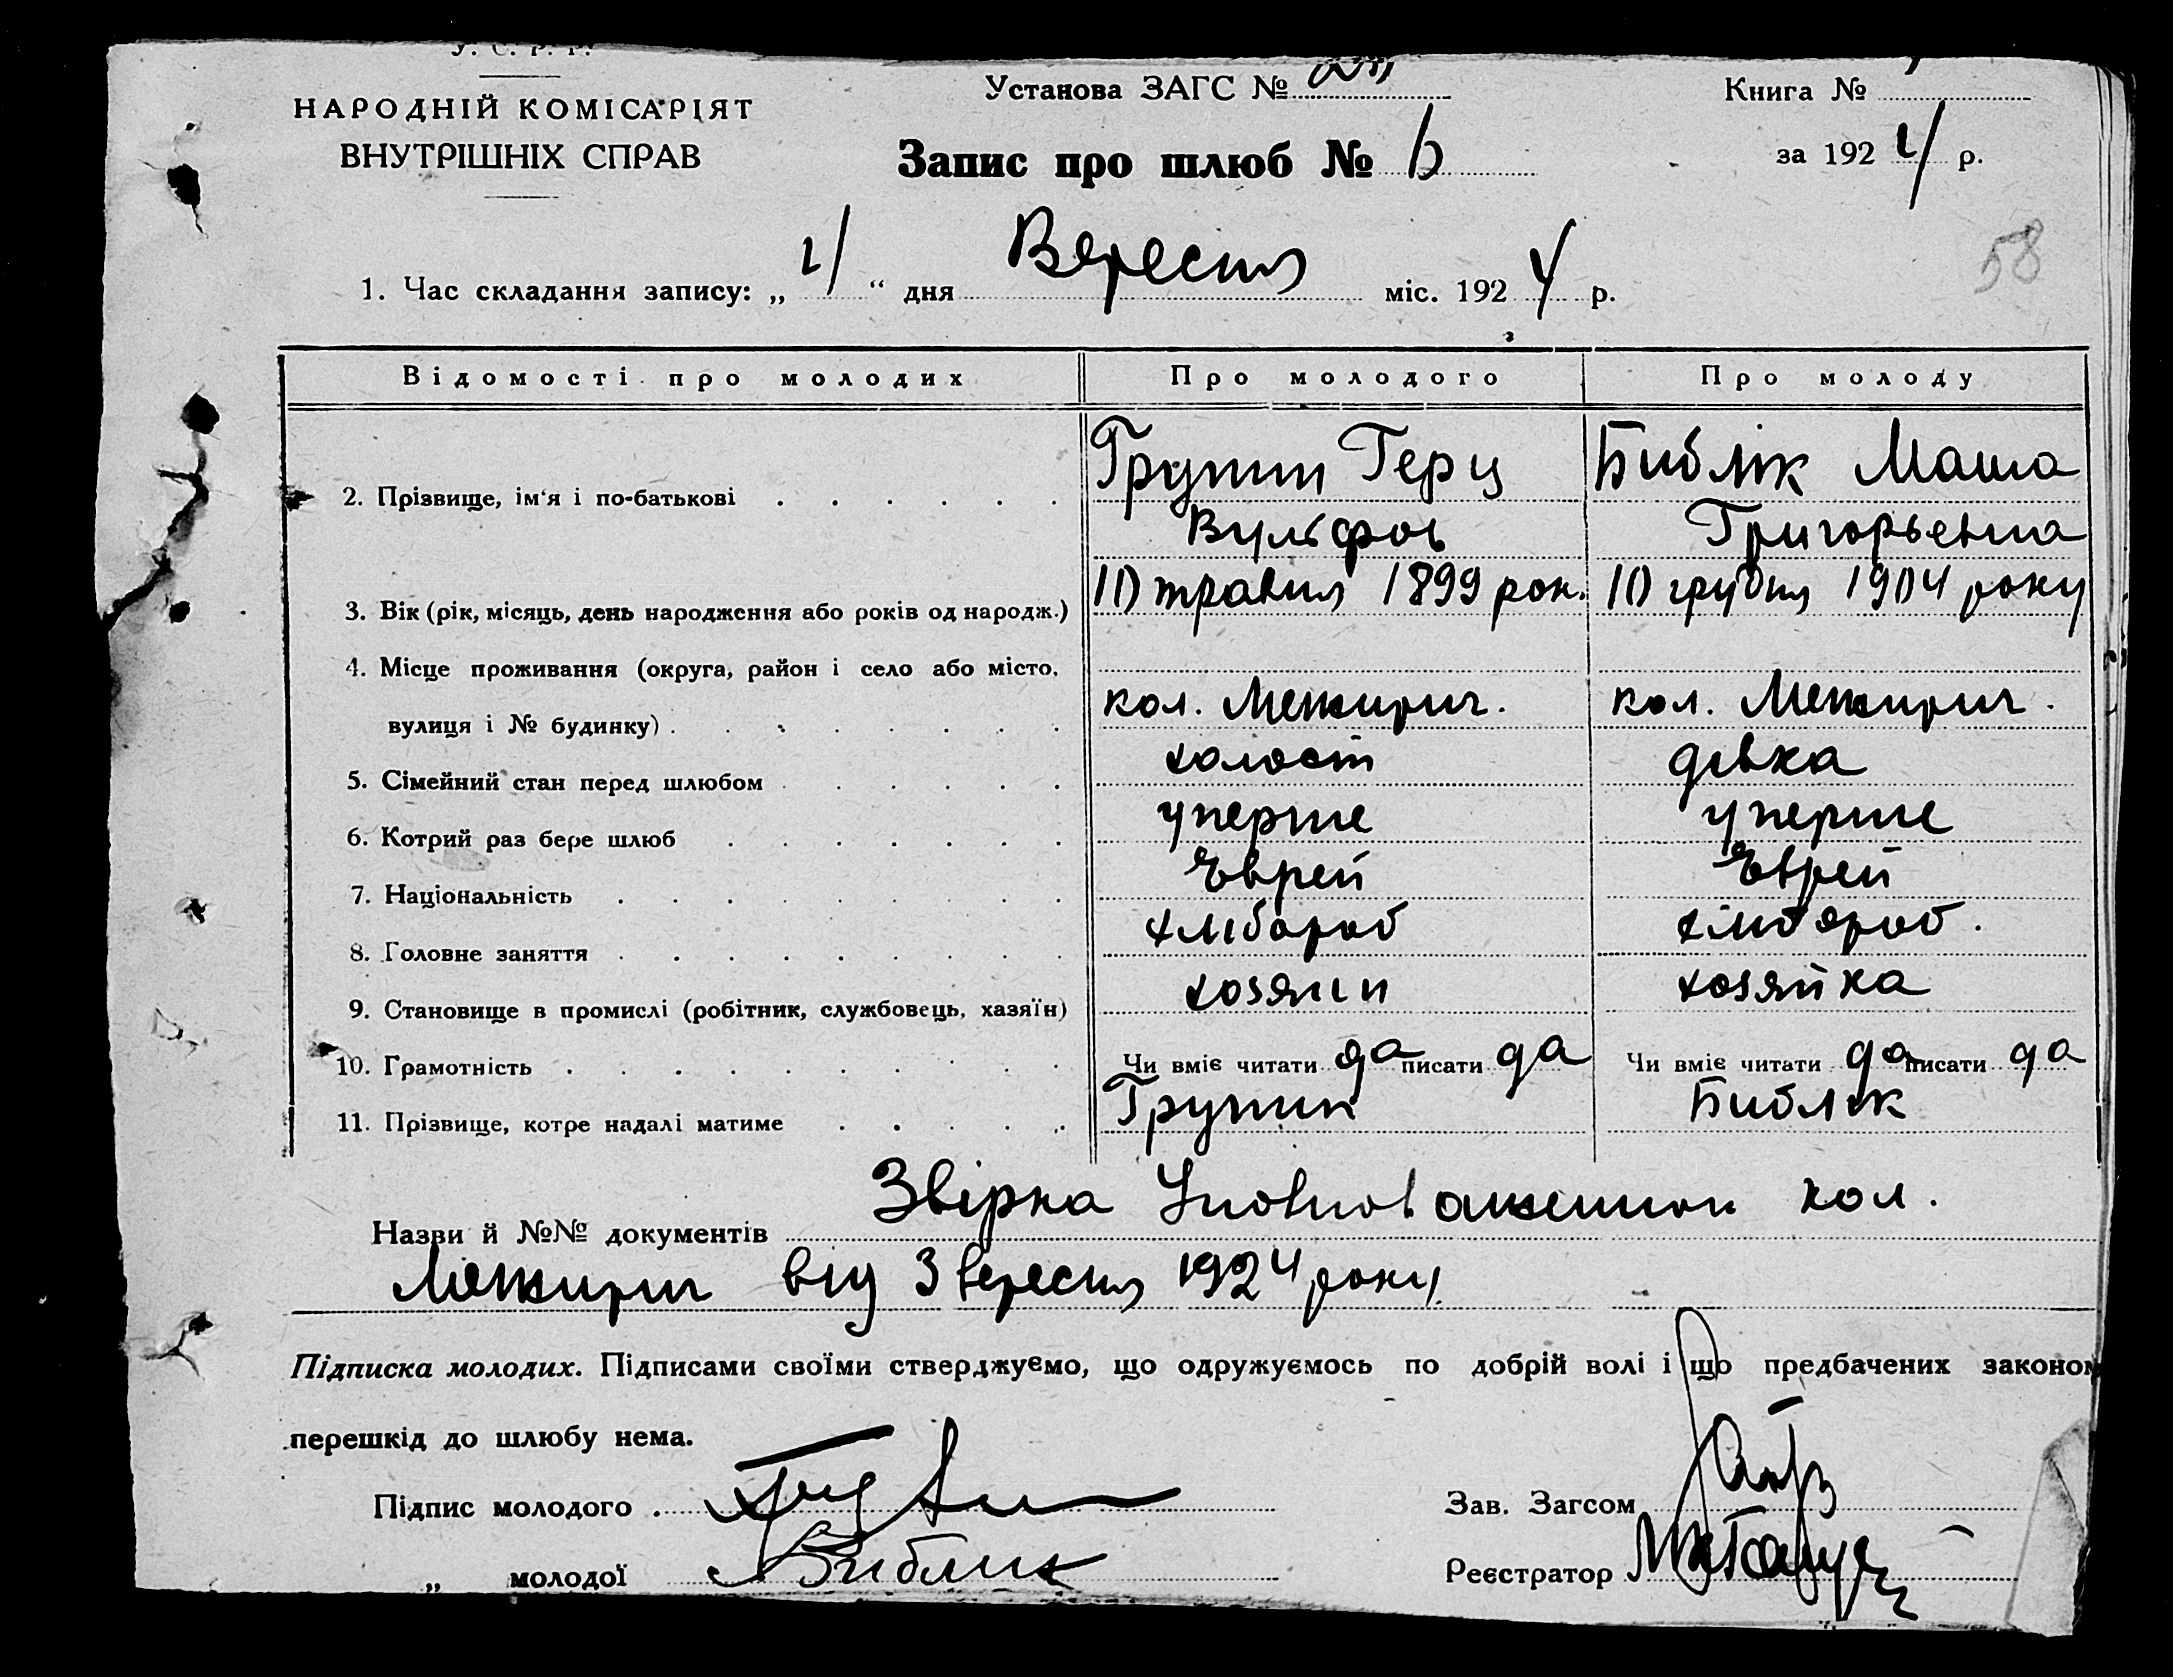 У. С. Р. Р.
НАРОДНІЙ КОМІСАРІЯТ
ВНУТРІШНІХ СПРАВ
Установа ЗАГС №
Книга №
Запис про шлюб № 6
за 1924 р.
58
1. Час складання запису: „4“ дня Вересня міс. 1924 р.
Відомості про молодих Про молодого Про молоду
2. Прізвище, ім'я і по-батькові Герц Библік Маша
Вульфов Григорьевна
3. Вік (рік, місяць, день народження або років од народж.) 10 травня 1899 рок. 10 грудня 1904 року
4. Місце проживання (округа, район і село або місто,
вулиця і № будинку) кол. Межирич. кол. Межирич.
5. Сімейний стан перед шлюбом холост дівка
6. Котрий раз бере шлюб уперше уперше
7. Національність Еврей Еврей
8. Головне заняття хлібороб хлібороб.
9. Становище в промислі (робітник, службовець, хазяїн) хозяин хозяйка
10. Грамотність Чи вміє читати да писати да Чи вміє читати да писати да
11. Прізвище, котре надалі матиме Библік
Назви й №№ документів Звірка кол.
Межирич від 3 вересня 1924 року.
Підписка молодих. Підписами своїми стверджуємо, що одружуємось по добрій волі і що предбачених законом
перешкід до шлюбу нема.
Підпис молодого
Зав. Загсом
„ молодої Библик
Реєстратор